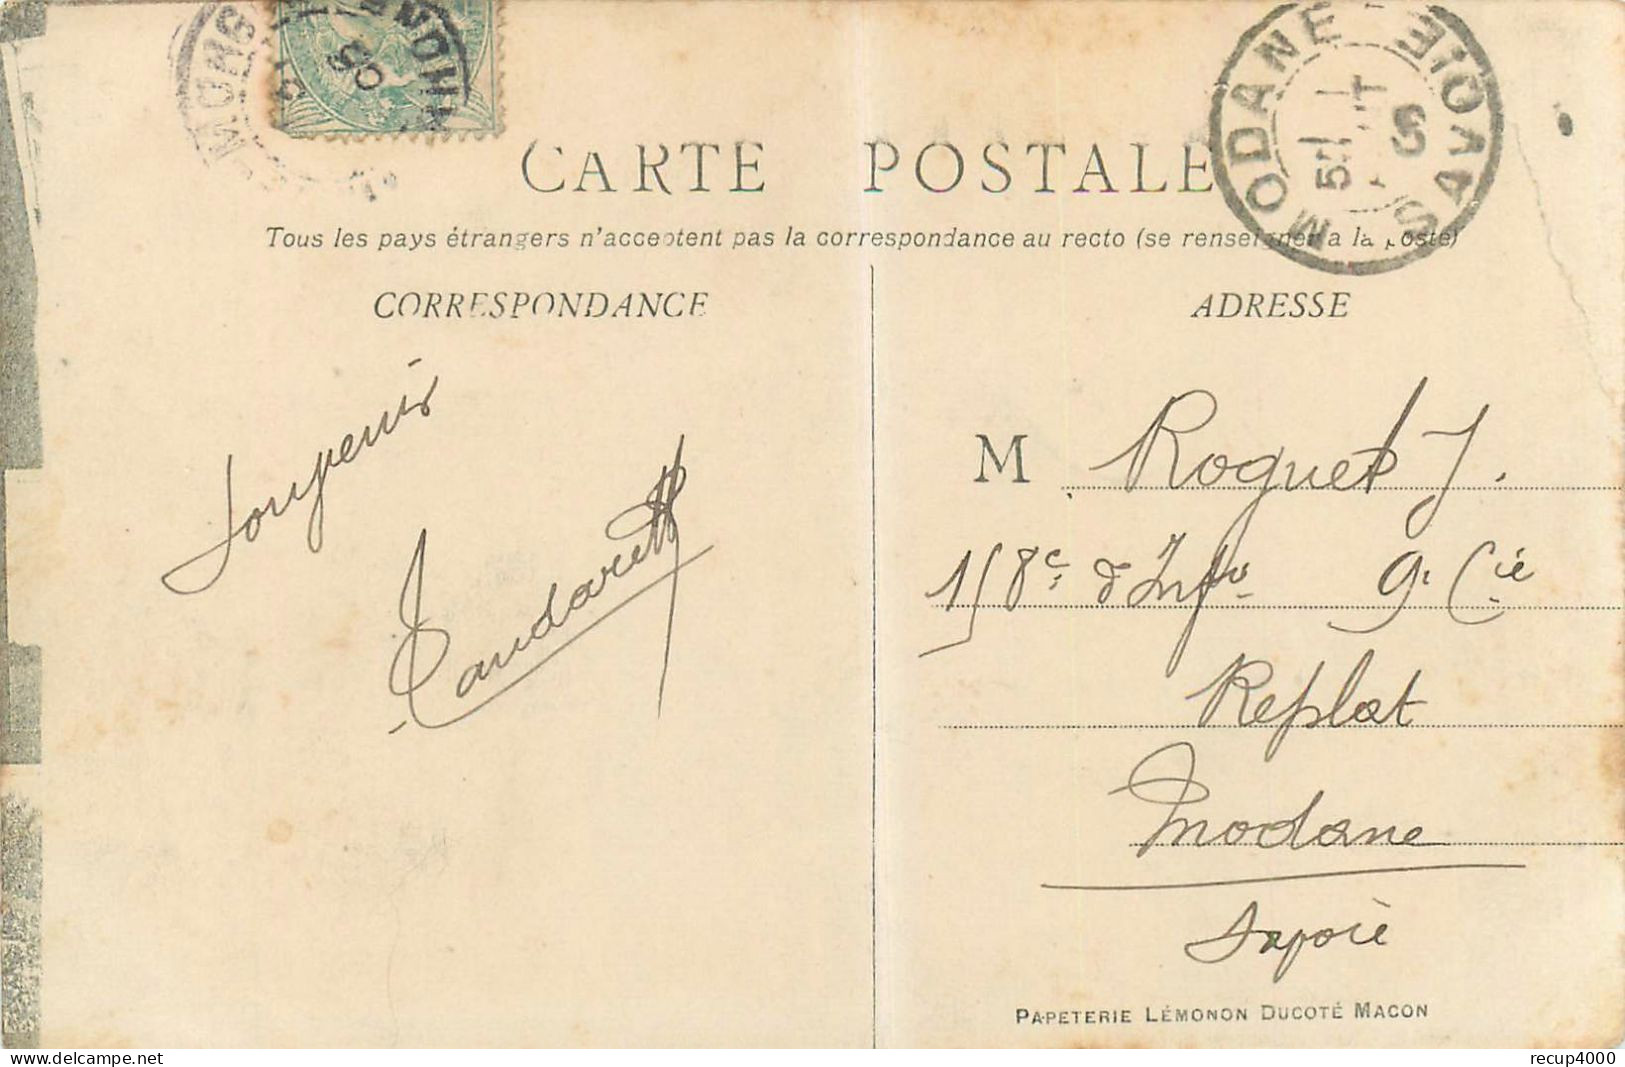 CARTE POSTALE
Tous les pays étrangers n'acceptent pas la correspondance au recto (se renseigner a la poste)
CORRESPONDANCE
ADRESSE
MODANE SAVOIE
Souvenir
M Roguet J.
158e d'Infie 9e Cie
Replat
Modane
Savoie
PAPETERIE LÉMONON DUCOTÉ MACON
recup4000